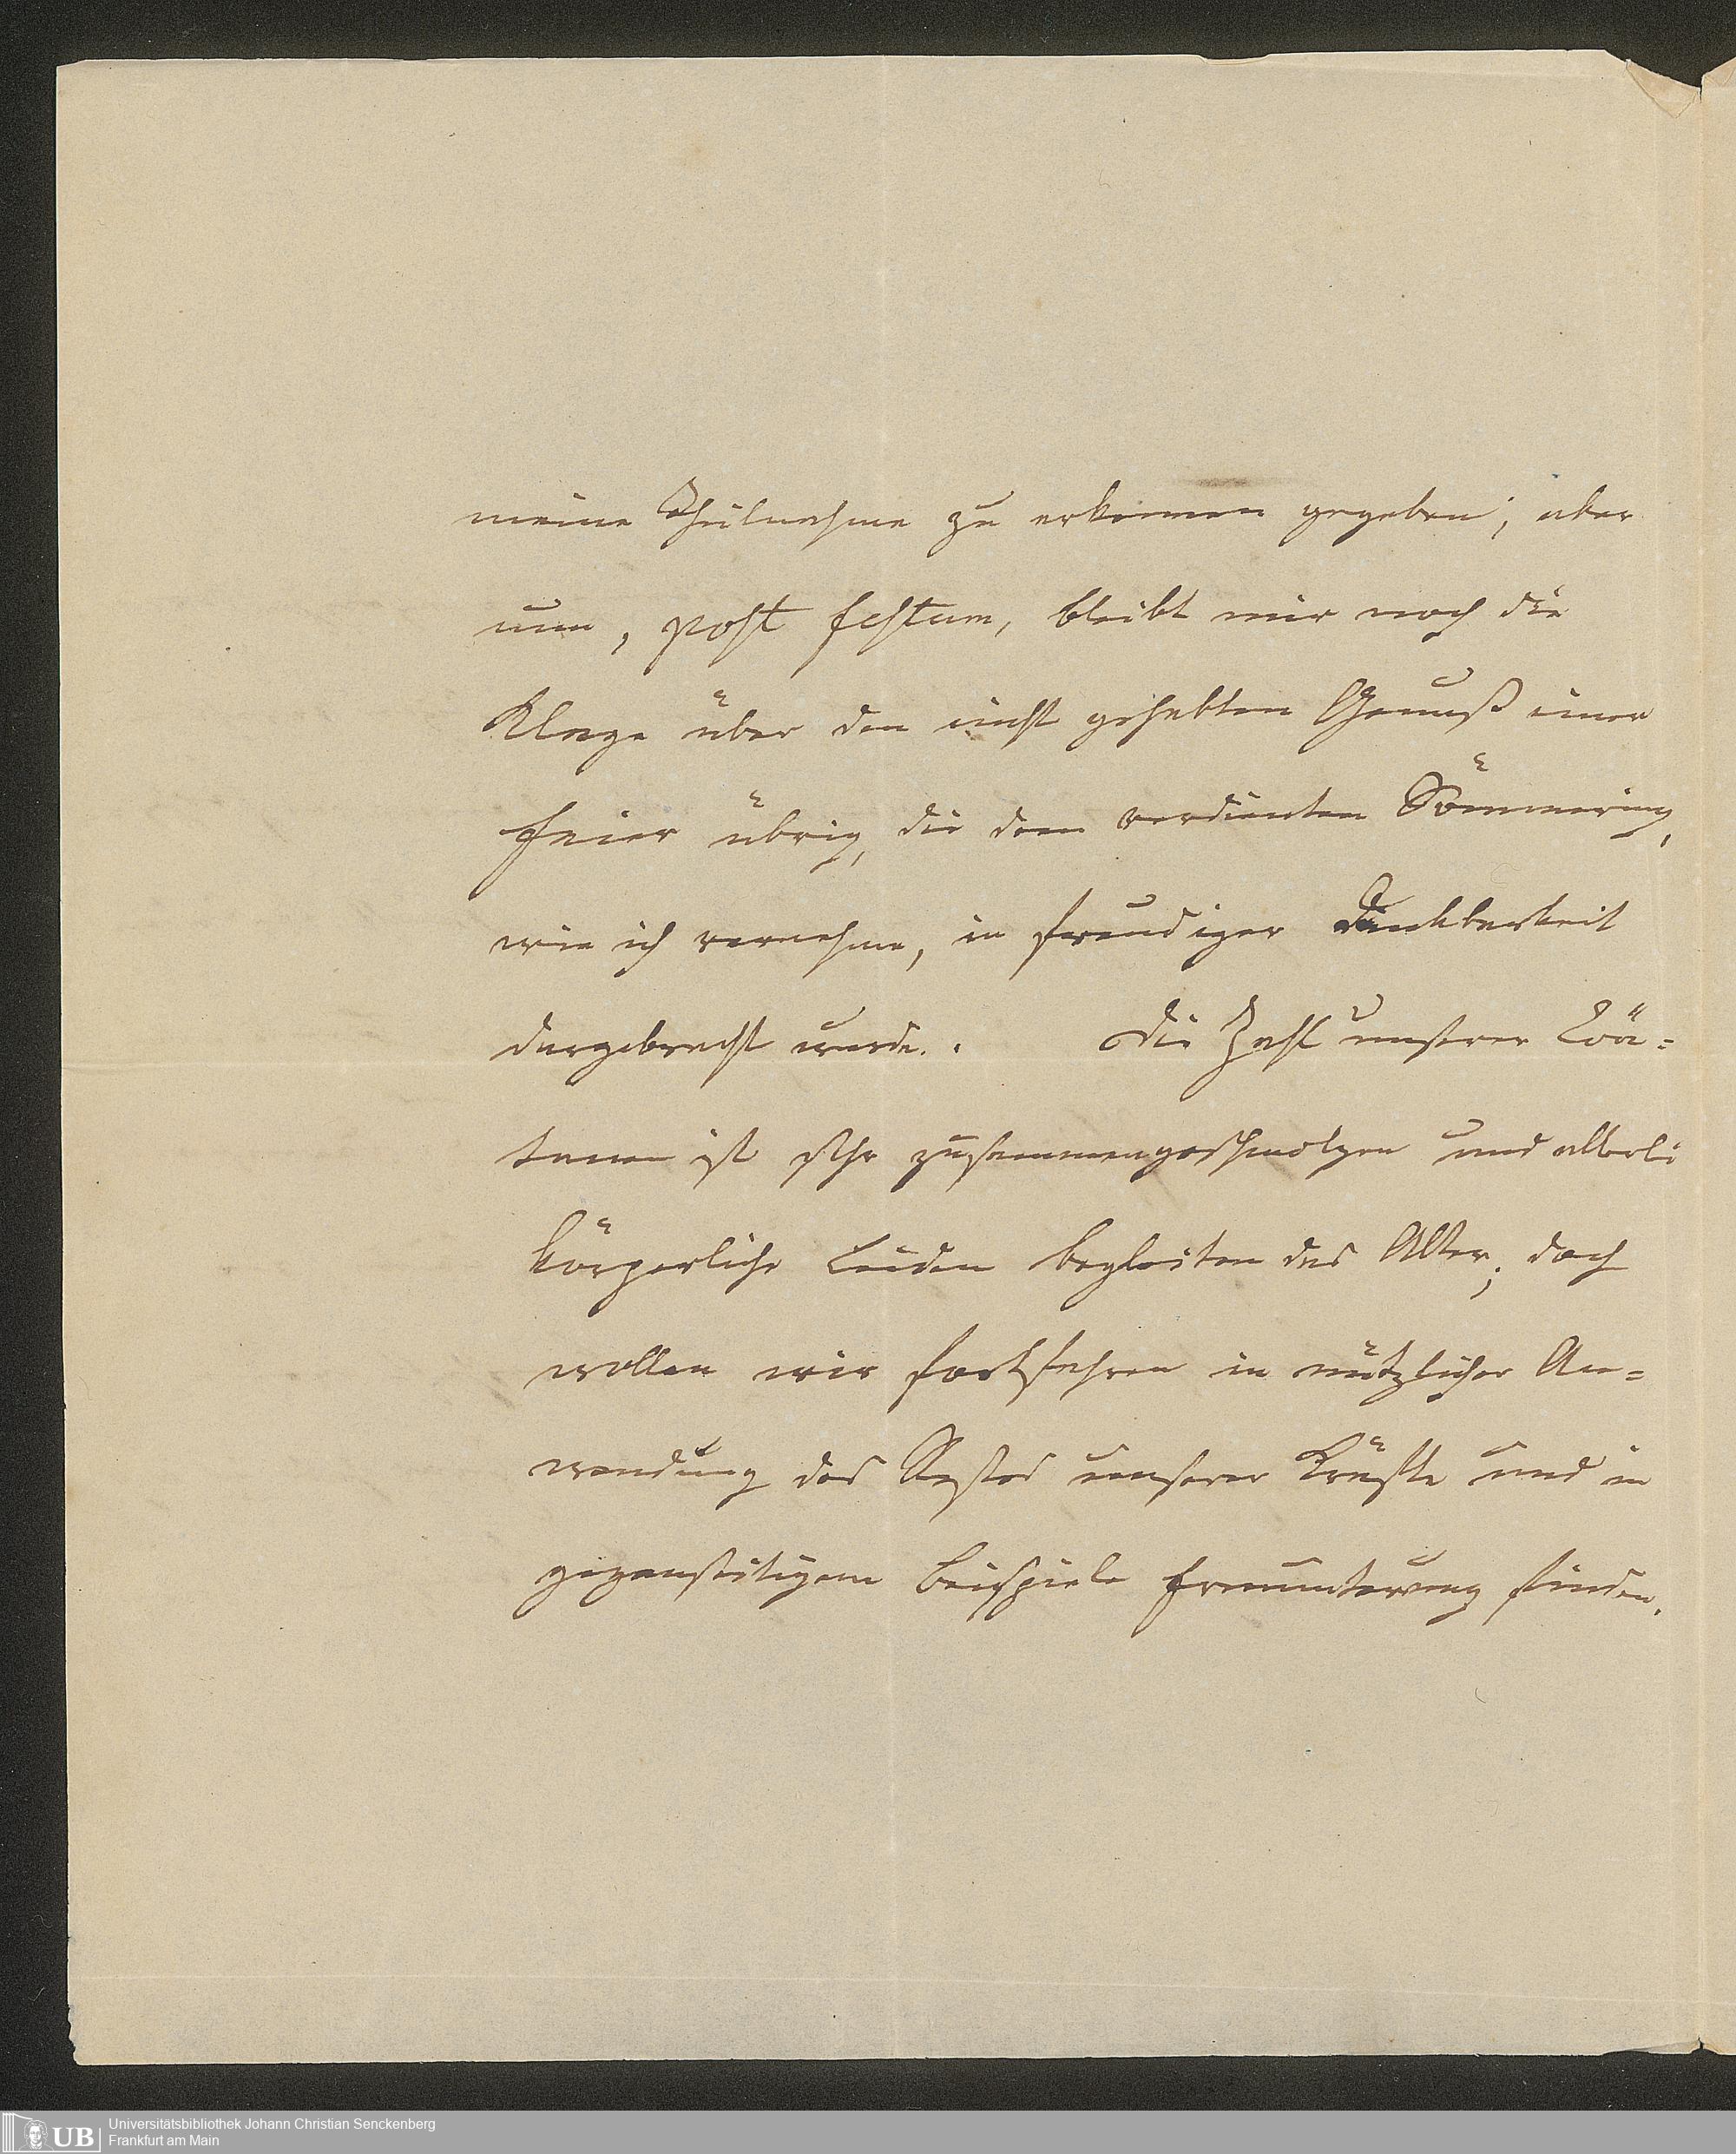 meine Theilnahme zu erkennen gegeben; aber
nun, post festum, bleibt mir noch die
Klage über den nicht gehabten Genuß einer
Feier übrig, die dem verdienten Sömmering,
wie ich vernehme, in freudiger Dankbarkeit
dargebracht wurde. Die Zahl unserer Coä=
tanen ist sehr zusammengeschmolzen und allerlei
körperliche Leiden begleiten das Alter; doch
wollen wir fortfahren in nützlicher An=
wendung des Restes unserer Kräfte und in
gegenseitigem Beispiele Ermunterung finden.
UB Universitätsbibliothek Johann Christian Senckenberg
Frankfurt am Main